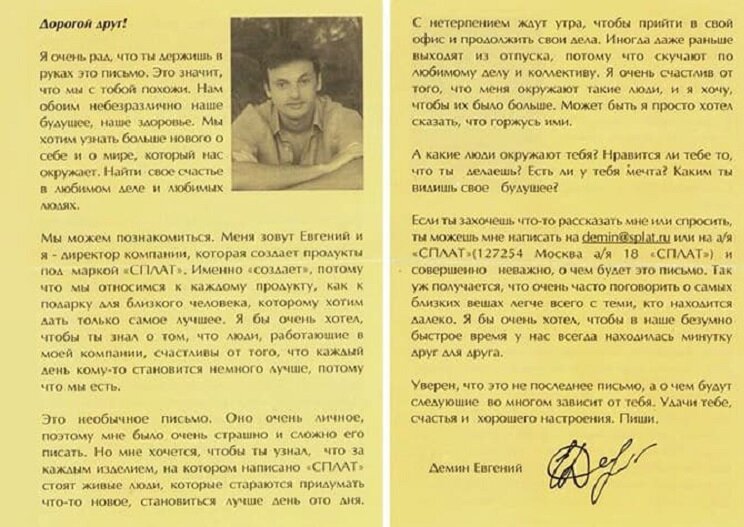 Дорогой друг!
Я очень рад, что ты держишь в
руках это письмо. Это значит,
что мы с тобой похожи. Нам
обоим небезразлично наше
будущее, наше здоровье. Мы
хотим узнать больше нового о
себе и о мире, который нас
окружает. Найти свое счастье
в любимом деле и любимых
людях.
Мы можем познакомиться. Меня зовут Евгений и
я - директор компании, которая создает продукты
под маркой «СПЛАТ». Именно «создает», потому
что мы относимся к каждому продукту, как к
подарку для близкого человека, которому хотим
дать только самое лучшее. Я бы очень хотел,
чтобы ты знал о том, что люди, работающие в
моей компании, счастливы от того, что каждый
день кому-то становится немного лучше, потому
что мы есть.
Это необычное письмо. Оно очень личное,
поэтому мне было очень страшно и сложно его
писать. Но мне хочется, чтобы ты узнал, что за
каждым изделием, на котором написано «СПЛАТ»
стоят живые люди, которые стараются придумать
что-то новое, становиться лучше день ото дня.
С нетерпением ждут утра, чтобы прийти в свой
офис и продолжить свои дела. Иногда даже раньше
выходят из отпуска, потому что скучают по
любимому делу и коллективу. Я очень счастлив от
того, что меня окружают такие люди, и я хочу,
чтобы их было больше. Может быть я просто хотел
сказать, что горжусь ими.
А какие люди окружают тебя? Нравится ли тебе то,
что ты делаешь? Есть ли у тебя мечта? Каким ты
видишь свое будущее?
Если ты захочешь что-то рассказать мне или спросить,
ты можешь мне написать на demin@splat.ru или на а/я
«СПЛАТ»(127254 Москва а/я 18 «СПЛАТ») и
совершенно неважно, о чем будет это письмо. Так
уж получается, что очень часто поговорить о самых
близких вещах легче всего с теми, кто находится
далеко. Я бы очень хотел, чтобы в наше безумно
быстрое время у нас всегда находилась минутку
друг для друга.
Уверен, что это не последнее письмо, а о чем будут
следующие во многом зависит от тебя. Удачи тебе,
счастья и хорошего настроения. Пиши.
Демин Евгений